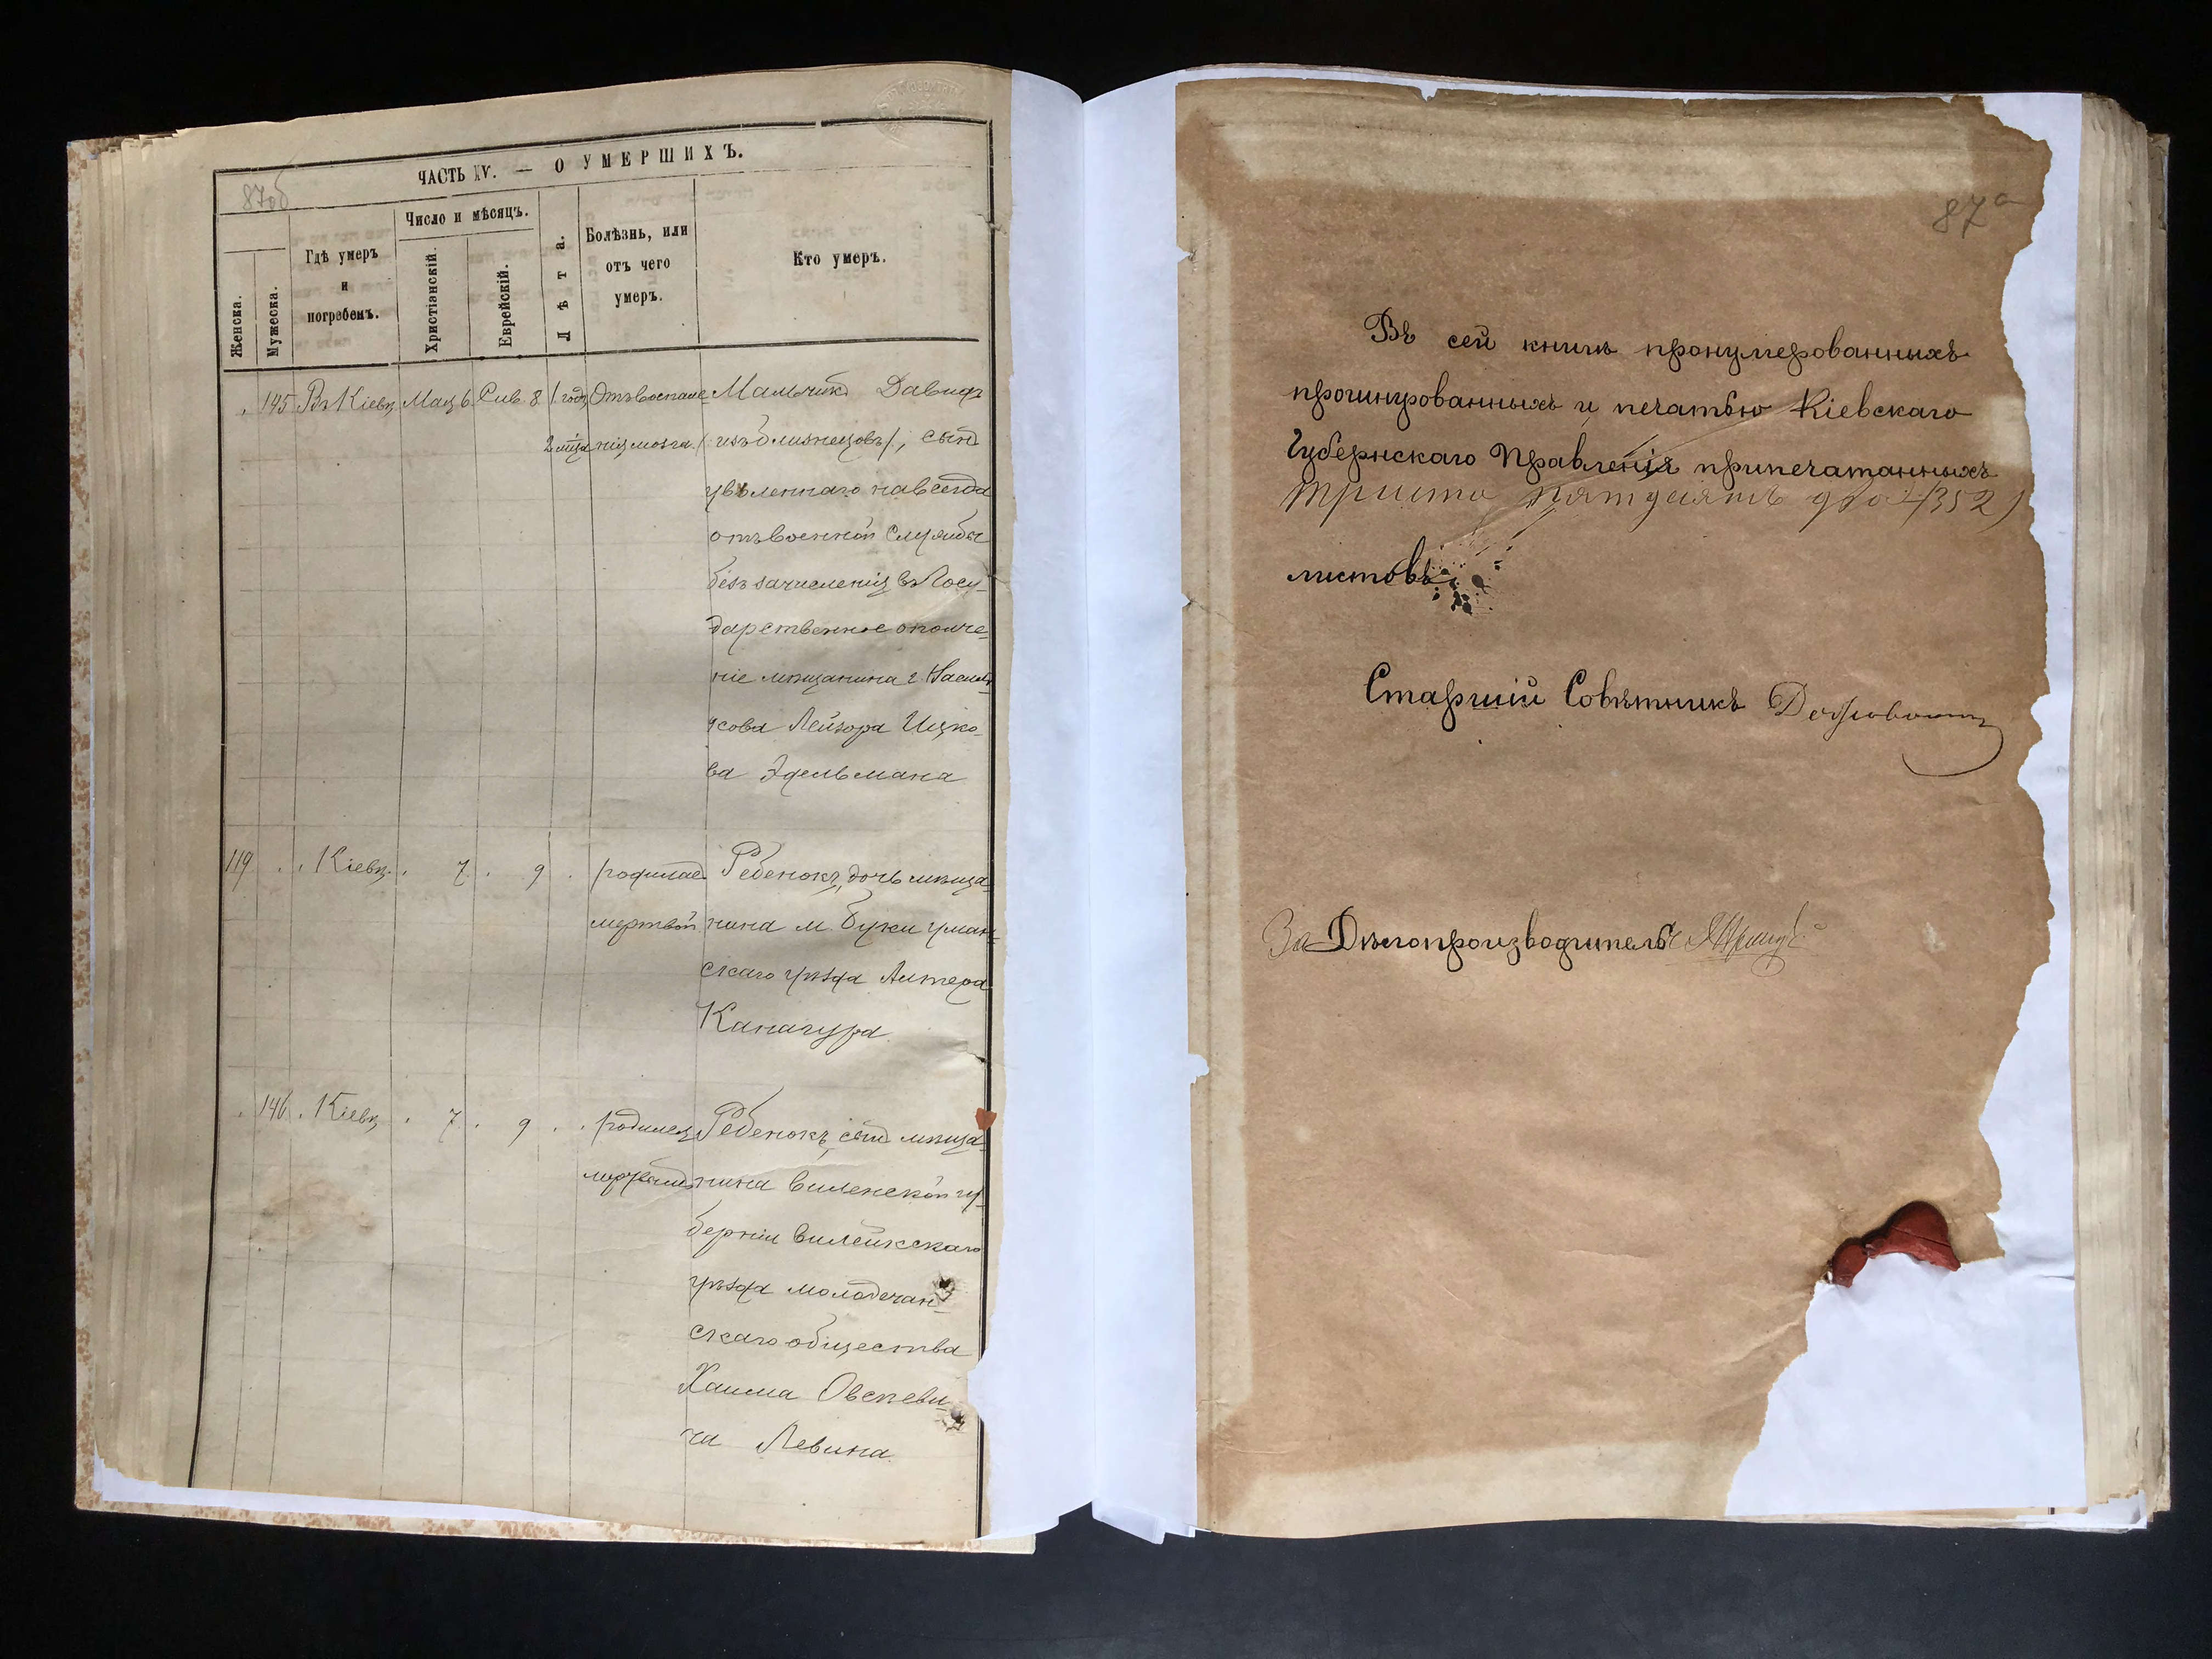 87об
ЧАСТЬ IV. — О УМЕРШИХЪ.
Женска.
Мужеска.
Гдѣ умеръ
и
погребенъ.
Число и мѣсяцъ.
Христіанскій.
Еврейскій.
Лѣта.
Болѣзнь, или
отъ чего
умеръ.
Кто умеръ.
145 Въ Кіевѣ Мая 6 Сив. 8 1 годъ Отъ воспале- Мальчикъ Давидъ
2 мѣца нія мозга. (изъ близнецовъ), сынъ
уволеннаго навсегда
отъ военной службы
безъ зачисленія въ Госу-
дарственное ополче-
ніе мѣщанина г. Василь-
кова Лейзора Ицко-
ва Эдельмана
119 Кіевѣ 7 9 родилась Ребенокъ, дочь мѣща-
мертвой нина м. Буки Уман-
скаго уѣзда Алтера
Канагура
146 Кіевѣ 7 9 родился Ребенокъ, сынъ мѣща-
мертвымъ нина Виленской гу-
берніи Вилейкскаго
уѣзда Молодечан-
скаго общества
Хаима Овсееви-
ча Левина
87а
Въ сей книгѣ пронумерованныхъ
прошнурованныхъ и печатью Кіевскаго
Губернскаго Правленія припечатанныхъ
триста пятдесятъ два (352)
листовъ
Старшій Совѣтникъ
За Дѣлопроизводитель